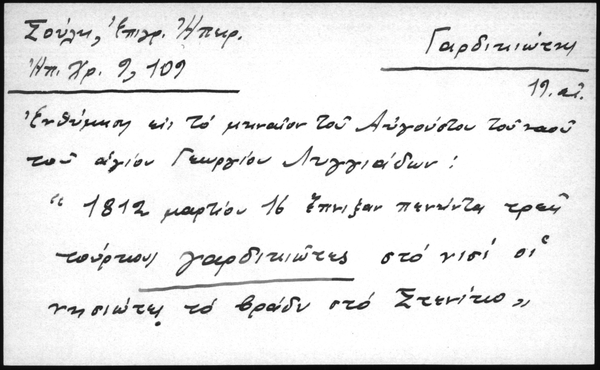 Σούλη, Ἐπιγρ. Ἠπειρ.
Γαρδικιώτης
Ἠπ. Χρ. 9, 109
19. αἰ.
Ἐνθύμηση εἰς τό μηναῖον τοῦ Αὐγούστου τοῦ ναοῦ
τοῦ ἁγίου Γεωργίου Λυγγιάδων :
" 1812 μαρτίου 16 ἔπνιξαν πενῆντα τρεῖς
τούρκους γαρδικιῶτες στό νισί οἱ
νησιώτες τό βράδυ στό Στενίτιο „